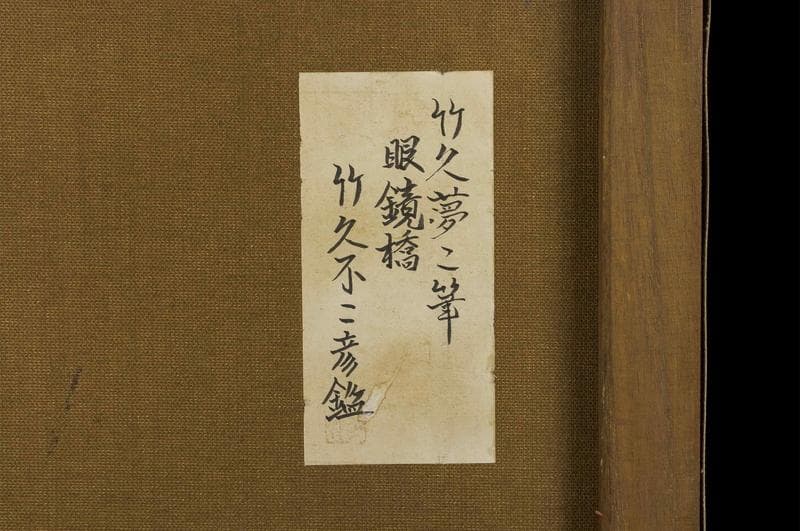 竹久夢二筆
眼鏡橋
竹久不二彦鑑